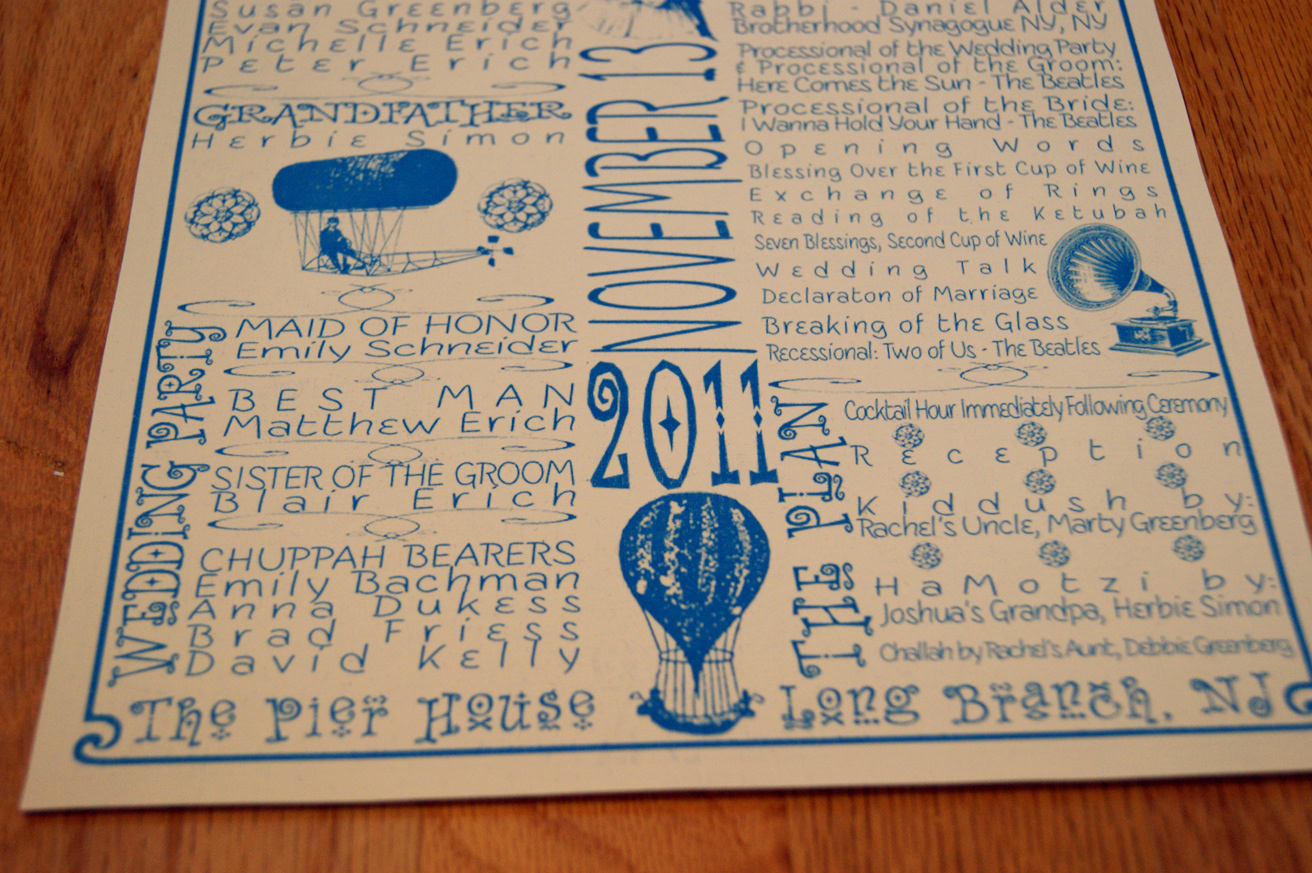 Susan Greenberg
Evan Schneider
Michelle Erich
Peter Erich
GRANDFATHER
Herbie Simon
WEDDING PARTY
MAID OF HONOR
Emily Schneider
BEST MAN
Matthew Erich
SISTER OF THE GROOM
Blair Erich
CHUPPAH BEARERS
Emily Bachman
Anna Dukess
Brad Friess
David Kelly
NOVEMBER 13
2011
Rabbi - Daniel Alder
Brotherhood Synagogue NY, NY
Processional of the Wedding Party
& Processional of the Groom:
Here Comes the Sun - The Beatles
Processional of the Bride:
I Wanna Hold Your Hand - The Beatles
Opening Words
Blessing Over the First Cup of Wine
Exchange of Rings
Reading of the Ketubah
Seven Blessings, Second Cup of Wine
Wedding Talk
Declaraton of Marriage
Breaking of the Glass
Recessional: Two of Us - The Beatles
THE PLAN
Cocktail Hour Immediately Following Ceremony
Reception
Kiddush by:
Rachel's Uncle, Marty Greenberg
HaMotzi by:
Joshua's Grandpa, Herbie Simon
Challah by Rachel's Aunt, Debbie Greenberg
The Pier House Long Branch, NJ